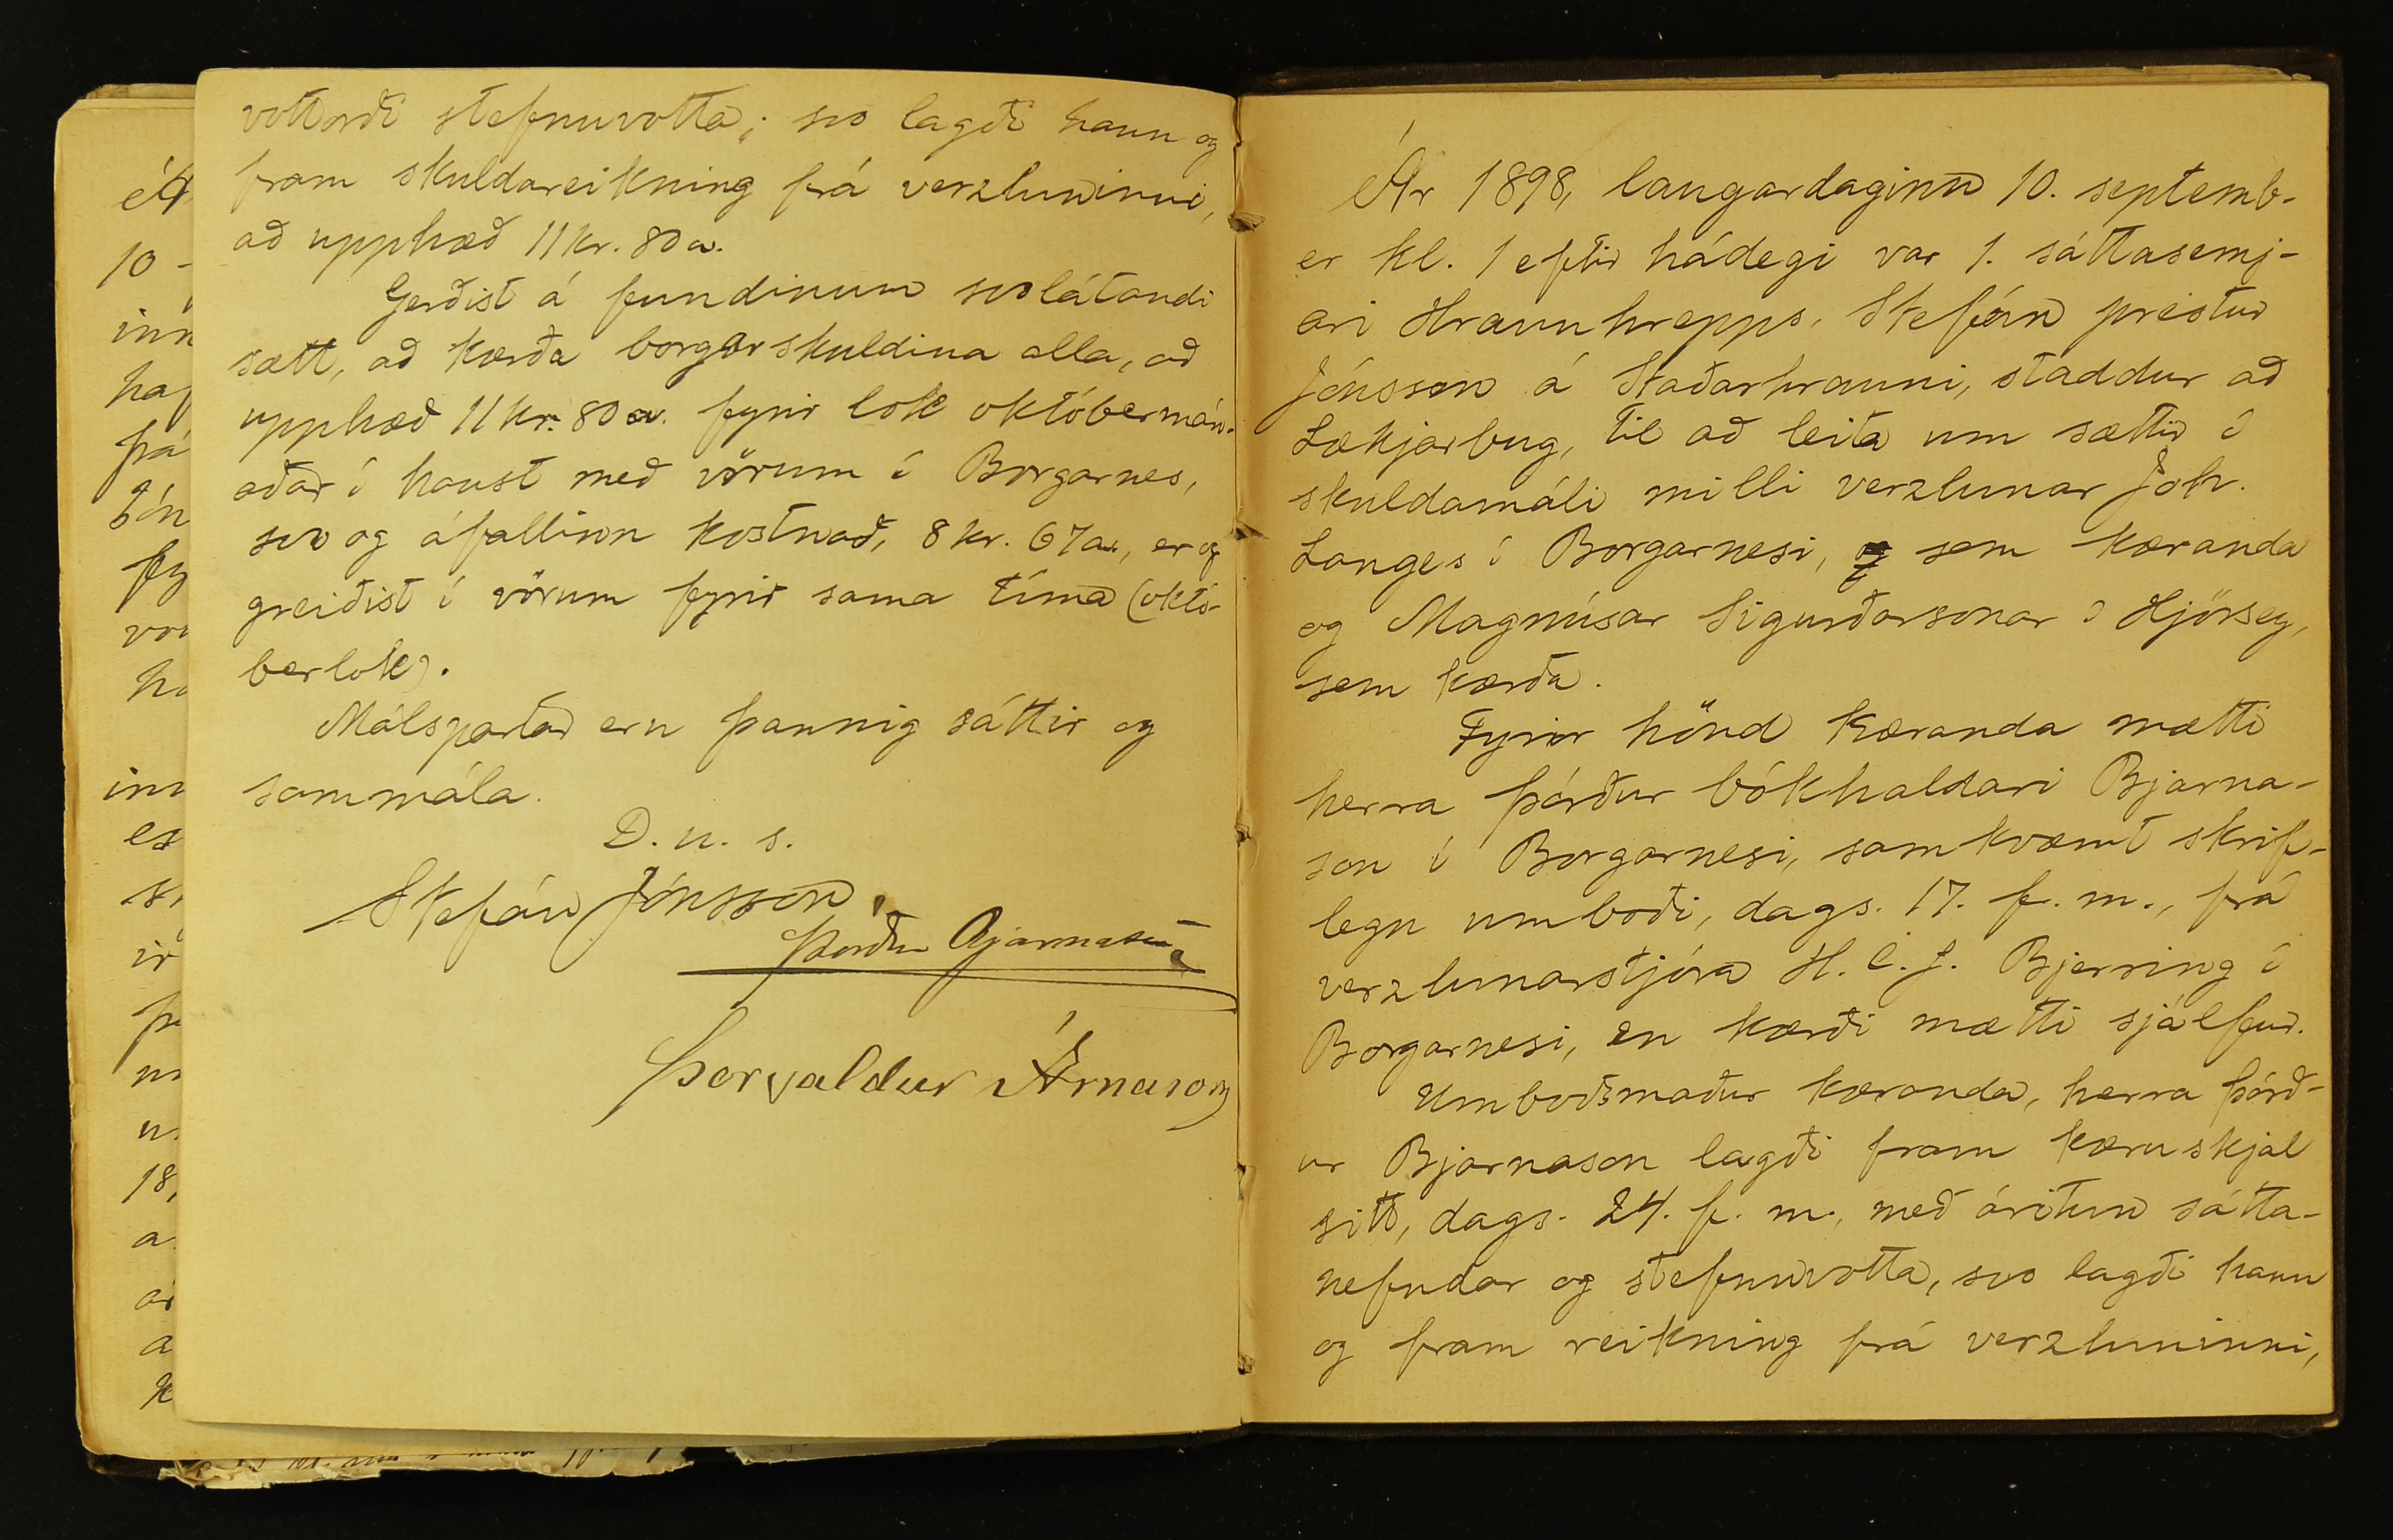 vottorði stefnuvotta; svo lagði hann og
fram skuldareikning frá verzluninni,
að upphæð 11 kr. 80 a.
Gerðist á fundinum svolátandi
sætt, að kærða borgar skuldina alla, að
upphæð 11 kr. 80 a. fyrir lok októbermán-
aðar í haust með vörum í Borgarnes,
svo og áfallinn kostnað, 8 kr. 67 a., er og
greiðist í vörum fyrir sama tíma (októ-
berlok).
Málspartar eru þannig sáttir og
sammála.
D. u. s.
Stefán Jónsson.
Þorður Bjarnason
Þorvaldur Árnason
Ár 1898, laugardaginn 10. septemb-
er kl. 1 eftir hádegi var 1. sáttasemj-
ari Hraunhrepps, Stefán prestur
Jónsson á Staðarhrauni, staddur að
Lækjarbug, til að leita um sættir í
skuldamáli milli verzlunar Joh.
Langes í Borgarnesi, og sem kæranda
og Magnúsar Sigurðarsonar í Hjörsey,
sem kærða.
Fyrir hönd kæranda mætti
herra Þórður bókhaldari Bjarna-
son í Borgarnesi, samkvæmt skrif-
legu umboði, dags. 17. f. m., frá
verzlunarstjóra H. C. J. Bjerring í
Borgarnesi, en kærði mætti sjálfur.
Umboðsmaður kæranda, herra Þórð-
ur Bjarnason lagði fram kæruskjal
sitt, dags. 24. f. m., með áritun sátta-
nefndar og stefnuvotta, svo lagði hann
og fram reikning frá verzluninni,